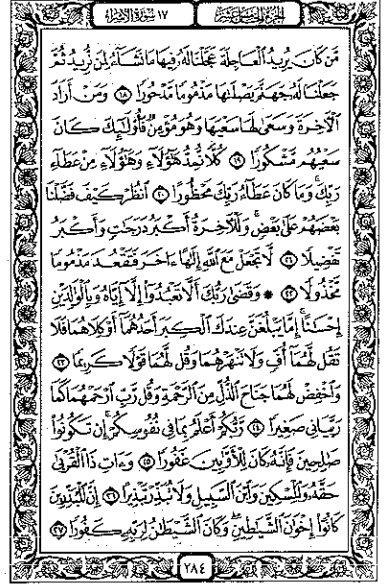 ١٧ سُورَةُ الْإِسْرَاءِ
الجزء الخامس عشر
مَّن كَانَ يُرِيدُ ٱلْعَاجِلَةَ عَجَّلْنَا لَهُۥ فِيهَا مَا نَشَآءُ لِمَن نُّرِيدُ ثُمَّ
جَعَلْنَا لَهُۥ جَهَنَّمَ يَصْلَىٰهَا مَذْمُومًا مَّدْحُورًا ١٨ وَمَنْ أَرَادَ
ٱلْآخِرَةَ وَسَعَىٰ لَهَا سَعْيَهَا وَهُوَ مُؤْمِنٌ فَأُو۟لَٰٓئِكَ كَانَ
سَعْيُهُم مَّشْكُورًا ١٩ كُلًّا نُّمِدُّ هَٰٓؤُلَآءِ وَهَٰٓؤُلَآءِ مِنْ عَطَآءِ
رَبِّكَ ۚ وَمَا كَانَ عَطَآءُ رَبِّكَ مَحْظُورًا ٢٠ ٱنظُرْ كَيْفَ فَضَّلْنَا
بَعْضَهُمْ عَلَىٰ بَعْضٍ ۚ وَلَلْآخِرَةُ أَكْبَرُ دَرَجَٰتٍ وَأَكْبَرُ
تَفْضِيلًا ٢١ لَّا تَجْعَلْ مَعَ ٱللَّهِ إِلَٰهًا ءَاخَرَ فَتَقْعُدَ مَذْمُومًا
مَّخْذُولًا ٢٢ ۞ وَقَضَىٰ رَبُّكَ أَلَّا تَعْبُدُوٓا۟ إِلَّآ إِيَّاهُ وَبِٱلْوَٰلِدَيْنِ
إِحْسَٰنًا ۚ إِمَّا يَبْلُغَنَّ عِندَكَ ٱلْكِبَرَ أَحَدُهُمَآ أَوْ كِلَاهُمَا فَلَا
تَقُل لَّهُمَآ أُفٍّ وَلَا تَنْهَرْهُمَا وَقُل لَّهُمَا قَوْلًا كَرِيمًا ٢٣
وَٱخْفِضْ لَهُمَا جَنَاحَ ٱلذُّلِّ مِنَ ٱلرَّحْمَةِ وَقُل رَّبِّ ٱرْحَمْهُمَا كَمَا
رَبَّيَانِى صَغِيرًا ٢٤ رَّبُّكُمْ أَعْلَمُ بِمَا فِى نُفُوسِكُمْ ۚ إِن تَكُونُوا۟
صَٰلِحِينَ فَإِنَّهُۥ كَانَ لِلْأَوَّٰبِينَ غَفُورًا ٢٥ وَءَاتِ ذَا ٱلْقُرْبَىٰ
حَقَّهُۥ وَٱلْمِسْكِينَ وَٱبْنَ ٱلسَّبِيلِ وَلَا تُبَذِّرْ تَبْذِيرًا ٢٦ إِنَّ ٱلْمُبَذِّرِينَ
كَانُوٓا۟ إِخْوَٰنَ ٱلشَّيَٰطِينِ ۖ وَكَانَ ٱلشَّيْطَٰنُ لِرَبِّهِۦ كَفُورًا ٢٧
٢٨٤